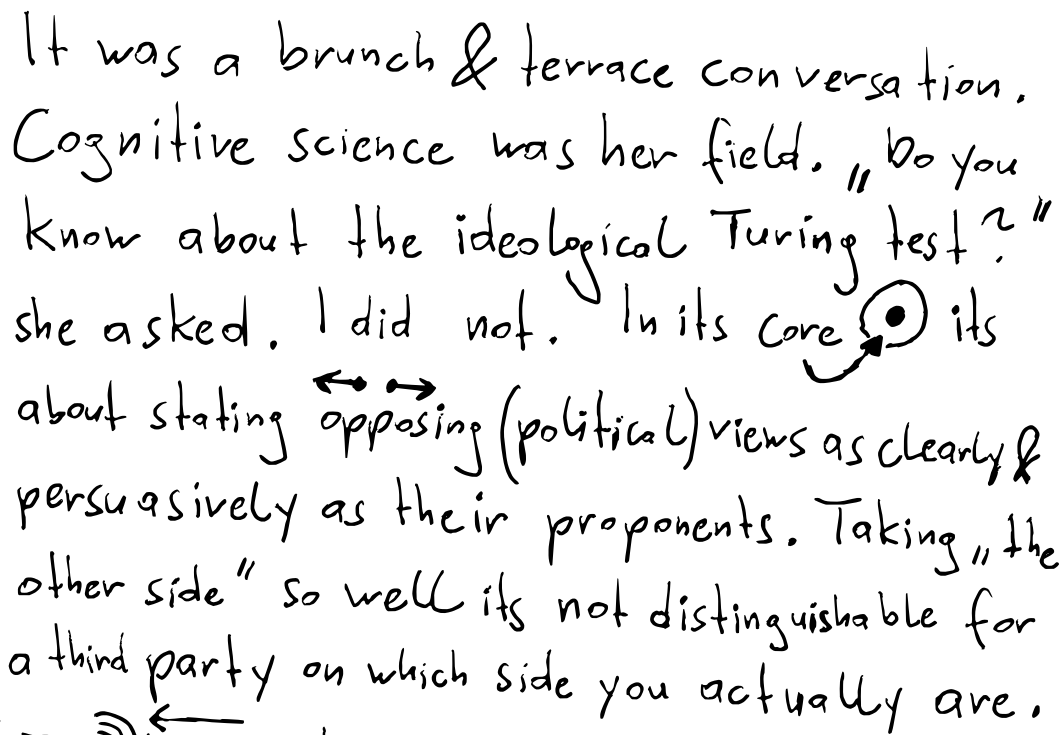 It was a brunch & terrace conversation.
Cognitive science was her field. „Do you
know about the ideological Turing test?"
she asked. I did not. In its core its
about stating opposing (political) views as clearly &
persuasively as their proponents. Taking „the
other side" so well its not distinguishable for
a third party on which side you actually are.